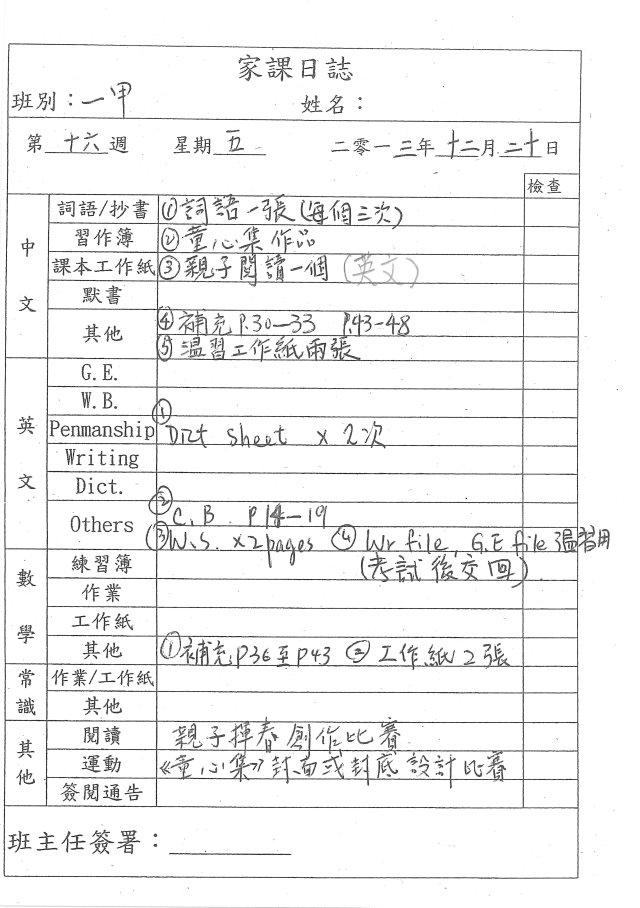 家課日誌
班別：一甲 姓名：
第 十六 週 星期 五 二零一三年 十二月 二十日
檢查
中文
詞語/抄書 ①詞語一張(每個三次)
習作簿 ②童心集作品
課本工作紙 ③親子閱讀一個 (英文)
默書
其他 ④補充P.30—33 P.43-48
⑤溫習工作紙兩張
英文
G.E.
W.B.
Penmanship ① Dict sheet x 2次
Writing
Dict.
Others ② C.B P14—19
③ W.S. x2pages ④ Wr file, G.E file 溫習用
(考試後交回)
數學
練習簿
作業
工作紙
其他 ①補充P36至P43 ②工作紙2張
常識
作業/工作紙
其他
其他
閱讀 親子揮春創作比賽
運動 《童心集》封面或封底設計比賽
簽閱通告
班主任簽署：